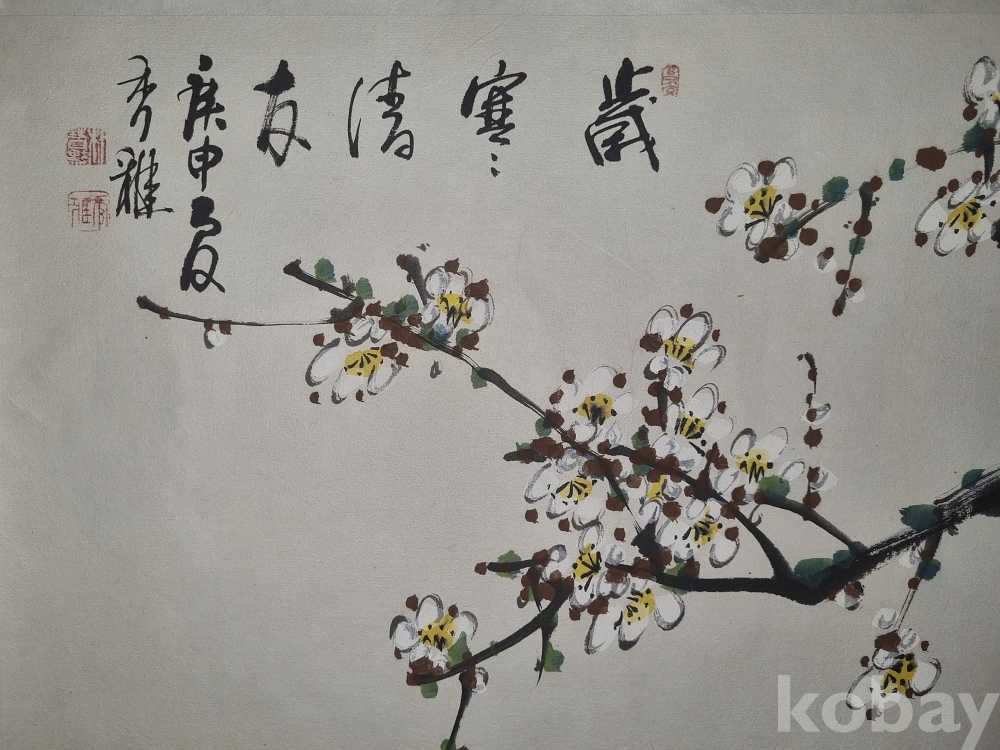 歲寒清友
庚申夏
秀雅
kobay